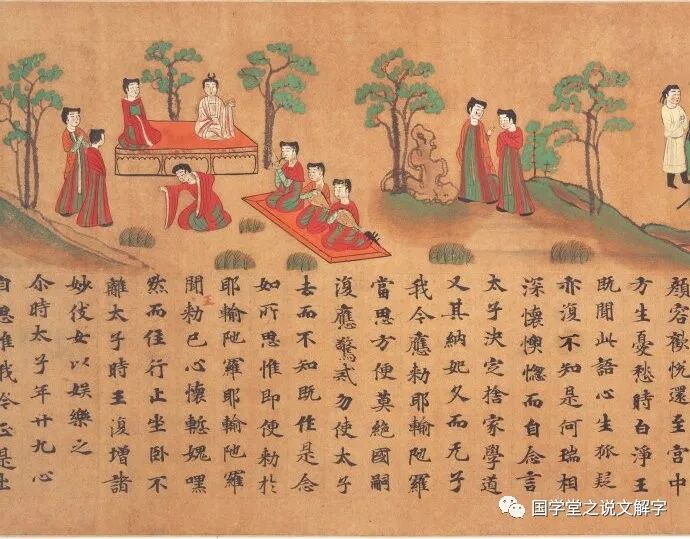 顏容歡悅還至宮中
方生憂愁時白淨王
既聞此語心生狐疑
亦復不知是何瑞相
深懷懊惱而自念言
太子決定捨家學道
又其納妃久而无子
我今應勅耶輸陁羅
當思方便莫絕國嗣
復應驚戒勿使太子
去而不知既作是念
如所思惟即便勅於
耶輸陁羅耶輸陁羅
王
聞勅已心懷慙愧嘿
然而住行止坐臥不
離太子時王復增諸
妙伎女以娛樂之
尒時太子年廿九心
自思惟我今正是出
国学堂之说文解字